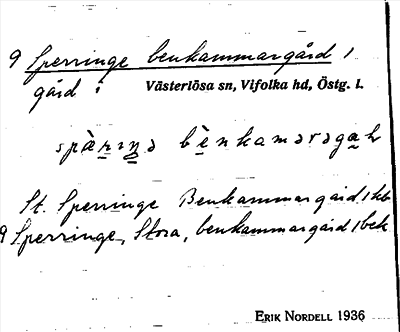 9 Sperringe benkammargård 1
gård i Västerlösa sn, Vifolka hd, Östg. l.
spæ̀rɪŋə bènkamərəgaḥ
St. Sperringe Benkammargård 1 kb
9 Sperringe, Stora, benkammargård 1 bek
ERIK NORDELL 1936